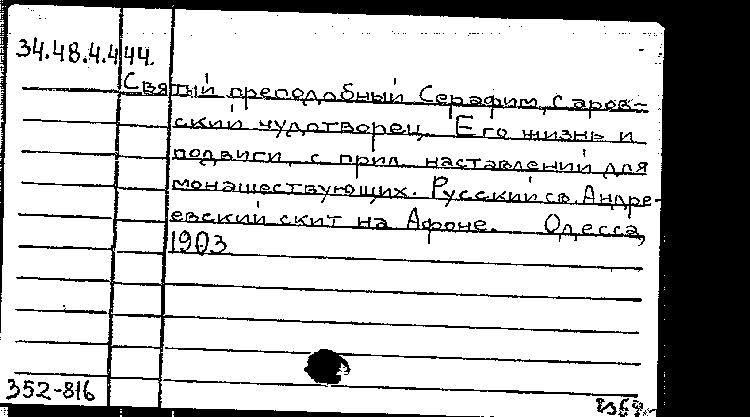 34.48.4.444.
Святый преподобный Серафим, Саров-
ский чудотворец. Его жизнь и
подвиги, с прил. наставлений для
монашествующих. Русский св. Андре-
евский скит на Афоне. Одесса,
1903
352-816